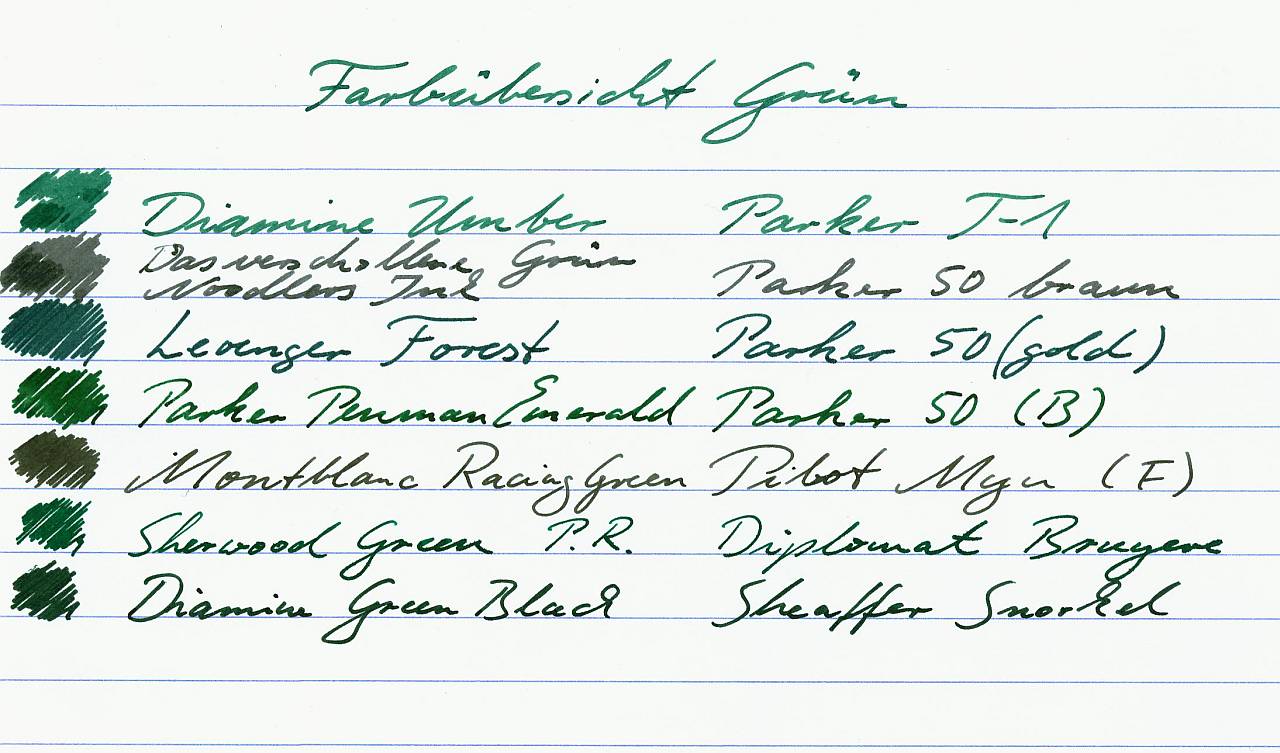 Farbübersicht Grün
Diamine Umber Parker T-1
Das verschollene Grün
Noodlers Ink Parker 50 braun
Levenger Forest Parker 50 (gold)
Parker Penman Emerald Parker 50 (B)
Montblanc Racing Green Pilot Myu (F)
Sherwood Green P.R. Diplomat Bruyere
Diamine Green Black Sheaffer Snorkel